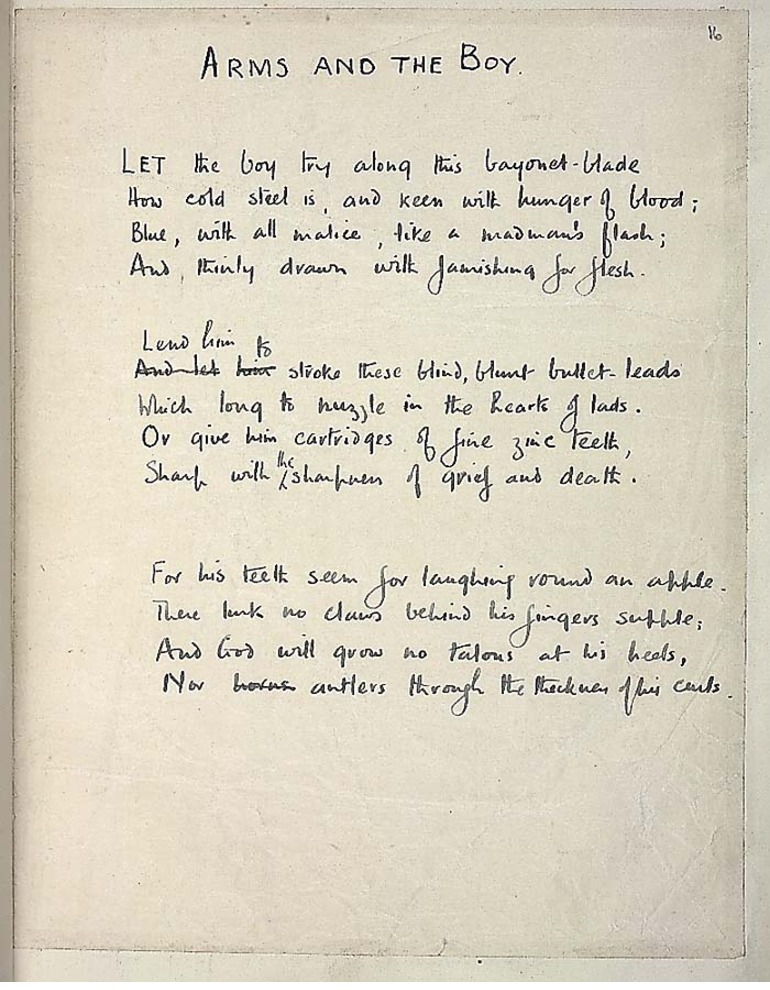 16
ARMS AND THE BOY.
LET the boy try along this bayonet-blade
How cold steel is, and keen with hunger of blood;
Blue, with all malice, like a madman's flash;
And, thinly drawn with famishing for flesh.
Lend him to
And let him stroke these blind, blunt bullet-leads
Which long to nuzzle in the hearts of lads.
Or give him cartridges of fine zinc teeth,
the
Sharp with sharpness of grief and death.
For his teeth seem for laughing round an apple.
There lurk no claws behind his fingers supple;
And God will grow no talons at his heels,
Nor horns antlers through the thickness of his curls.